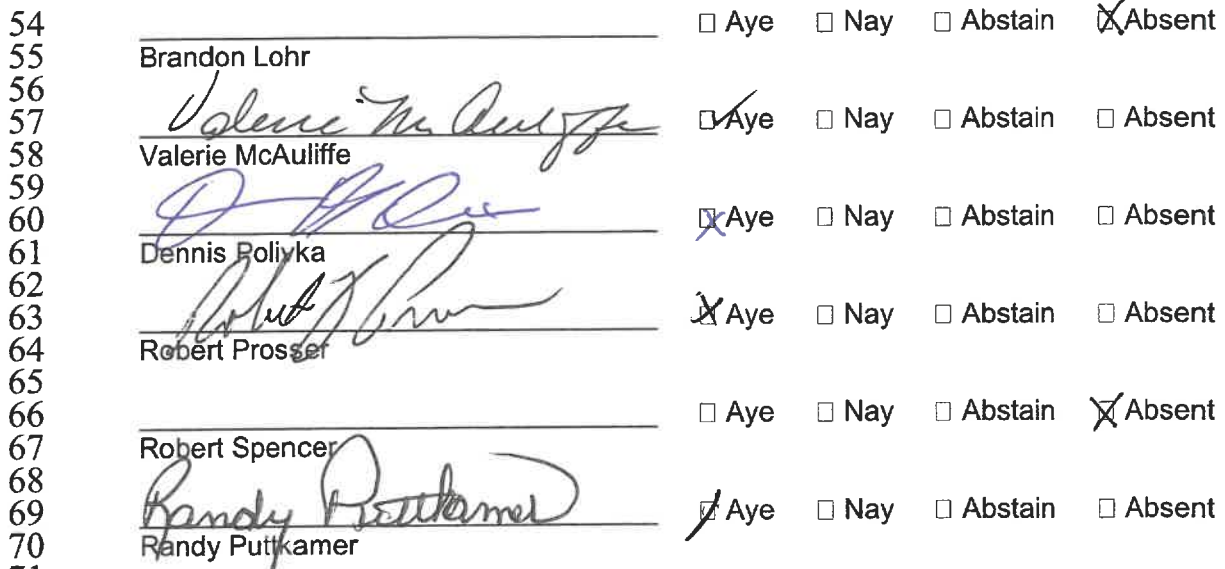 54 ☐ Aye ☐ Nay ☐ Abstain ☒ Absent
55 Brandon Lohr
56
57 Valerie McAuliffe ☑ Aye ☐ Nay ☐ Abstain ☐ Absent
58 Valerie McAuliffe
59
60 ☒ Aye ☐ Nay ☐ Abstain ☐ Absent
61 Dennis Polivka
62
63 Robert ☒ Aye ☐ Nay ☐ Abstain ☐ Absent
64 Robert Prosser
65
66 ☐ Aye ☐ Nay ☐ Abstain ☒ Absent
67 Robert Spencer
68
69 Randy Puttkamer ☑ Aye ☐ Nay ☐ Abstain ☐ Absent
70 Randy Puttkamer